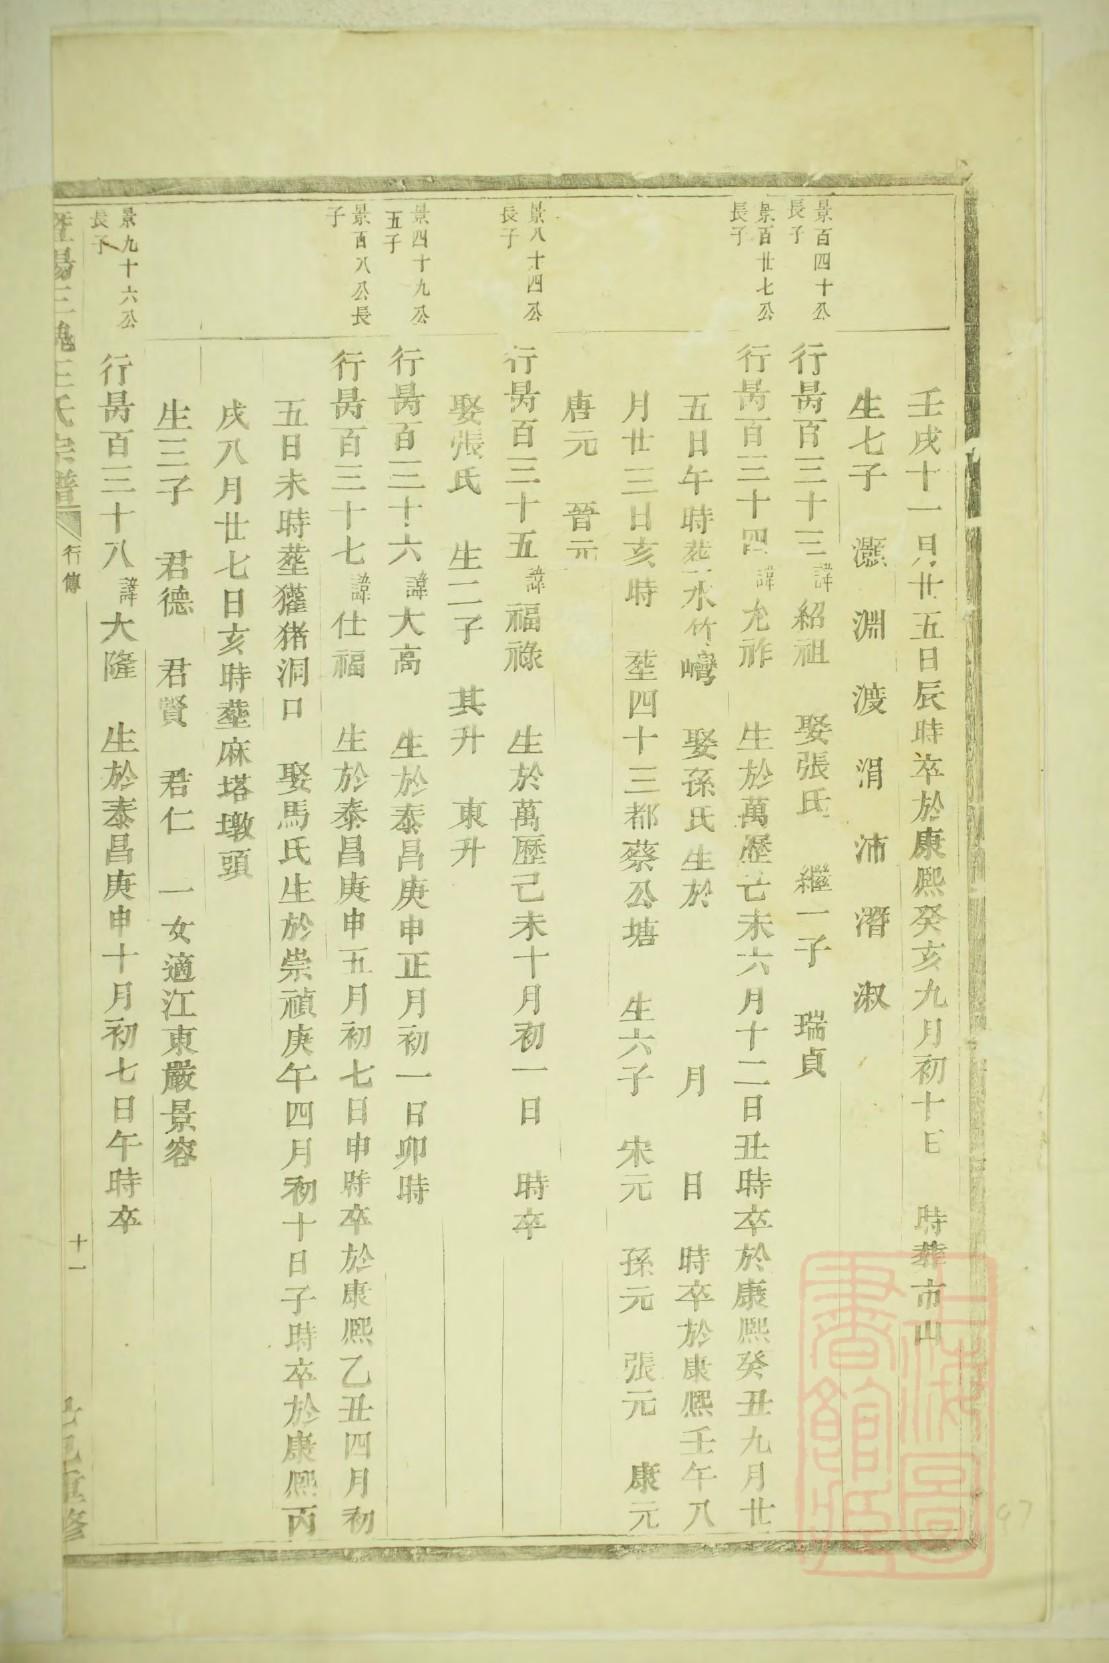 壬戌十一月廿五日辰時卒於康熙癸亥九月初十日 時葬市山
生七子 灝 淵 渡 涓 沛 潛 淑
景百四十公
長子
行昺百三十三諱紹祖 娶張氏 繼一子 瑞貞
景百廿七公
長子
行昺百三十四諱允祚 生於萬歷己未六月十二日丑時卒於康熙癸丑九月廿
五日午時葬水竹灣 娶孫氏生於 月 日 時卒於康熙壬午八
月廿三日亥時 塟四十三都蔡公塘 生六子 宋元 孫元 張元 康元
唐元 晉元
景八十四公
長子
行昺百三十五諱福祿 生於萬歷己未十月初一日 時卒
娶張氏 生二子 其升 東升
景四十九公
五子
行昺百三十六諱大高 生於泰昌庚申正月初一日卯時
景百八公長
子
行昺百三十七諱仕福 生於泰昌庚申五月初七日申時卒於康熙乙丑四月初
五日未時塟獾猪洞口 娶馬氏生於崇禎庚午四月初十日子時卒於康熙丙
戌八月廿七日亥時塟麻塔墩頭
生三子 君德 君賢 君仁 一女適江東嚴景容
景九十六公
長子
行昺百三十八諱大隆 生於泰昌庚申十月初七日午時卒
暨陽三槐王氏宗譜 行傳 十一 重修
上海圖書館藏
97